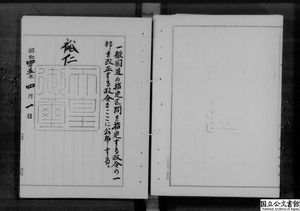 一般国道の指定区間を指定する政令の一
部を改正する政令をここに公布する。
裕仁
天皇
御璽
昭和四五年四月一日
国立公文書館
National Archives of Japan